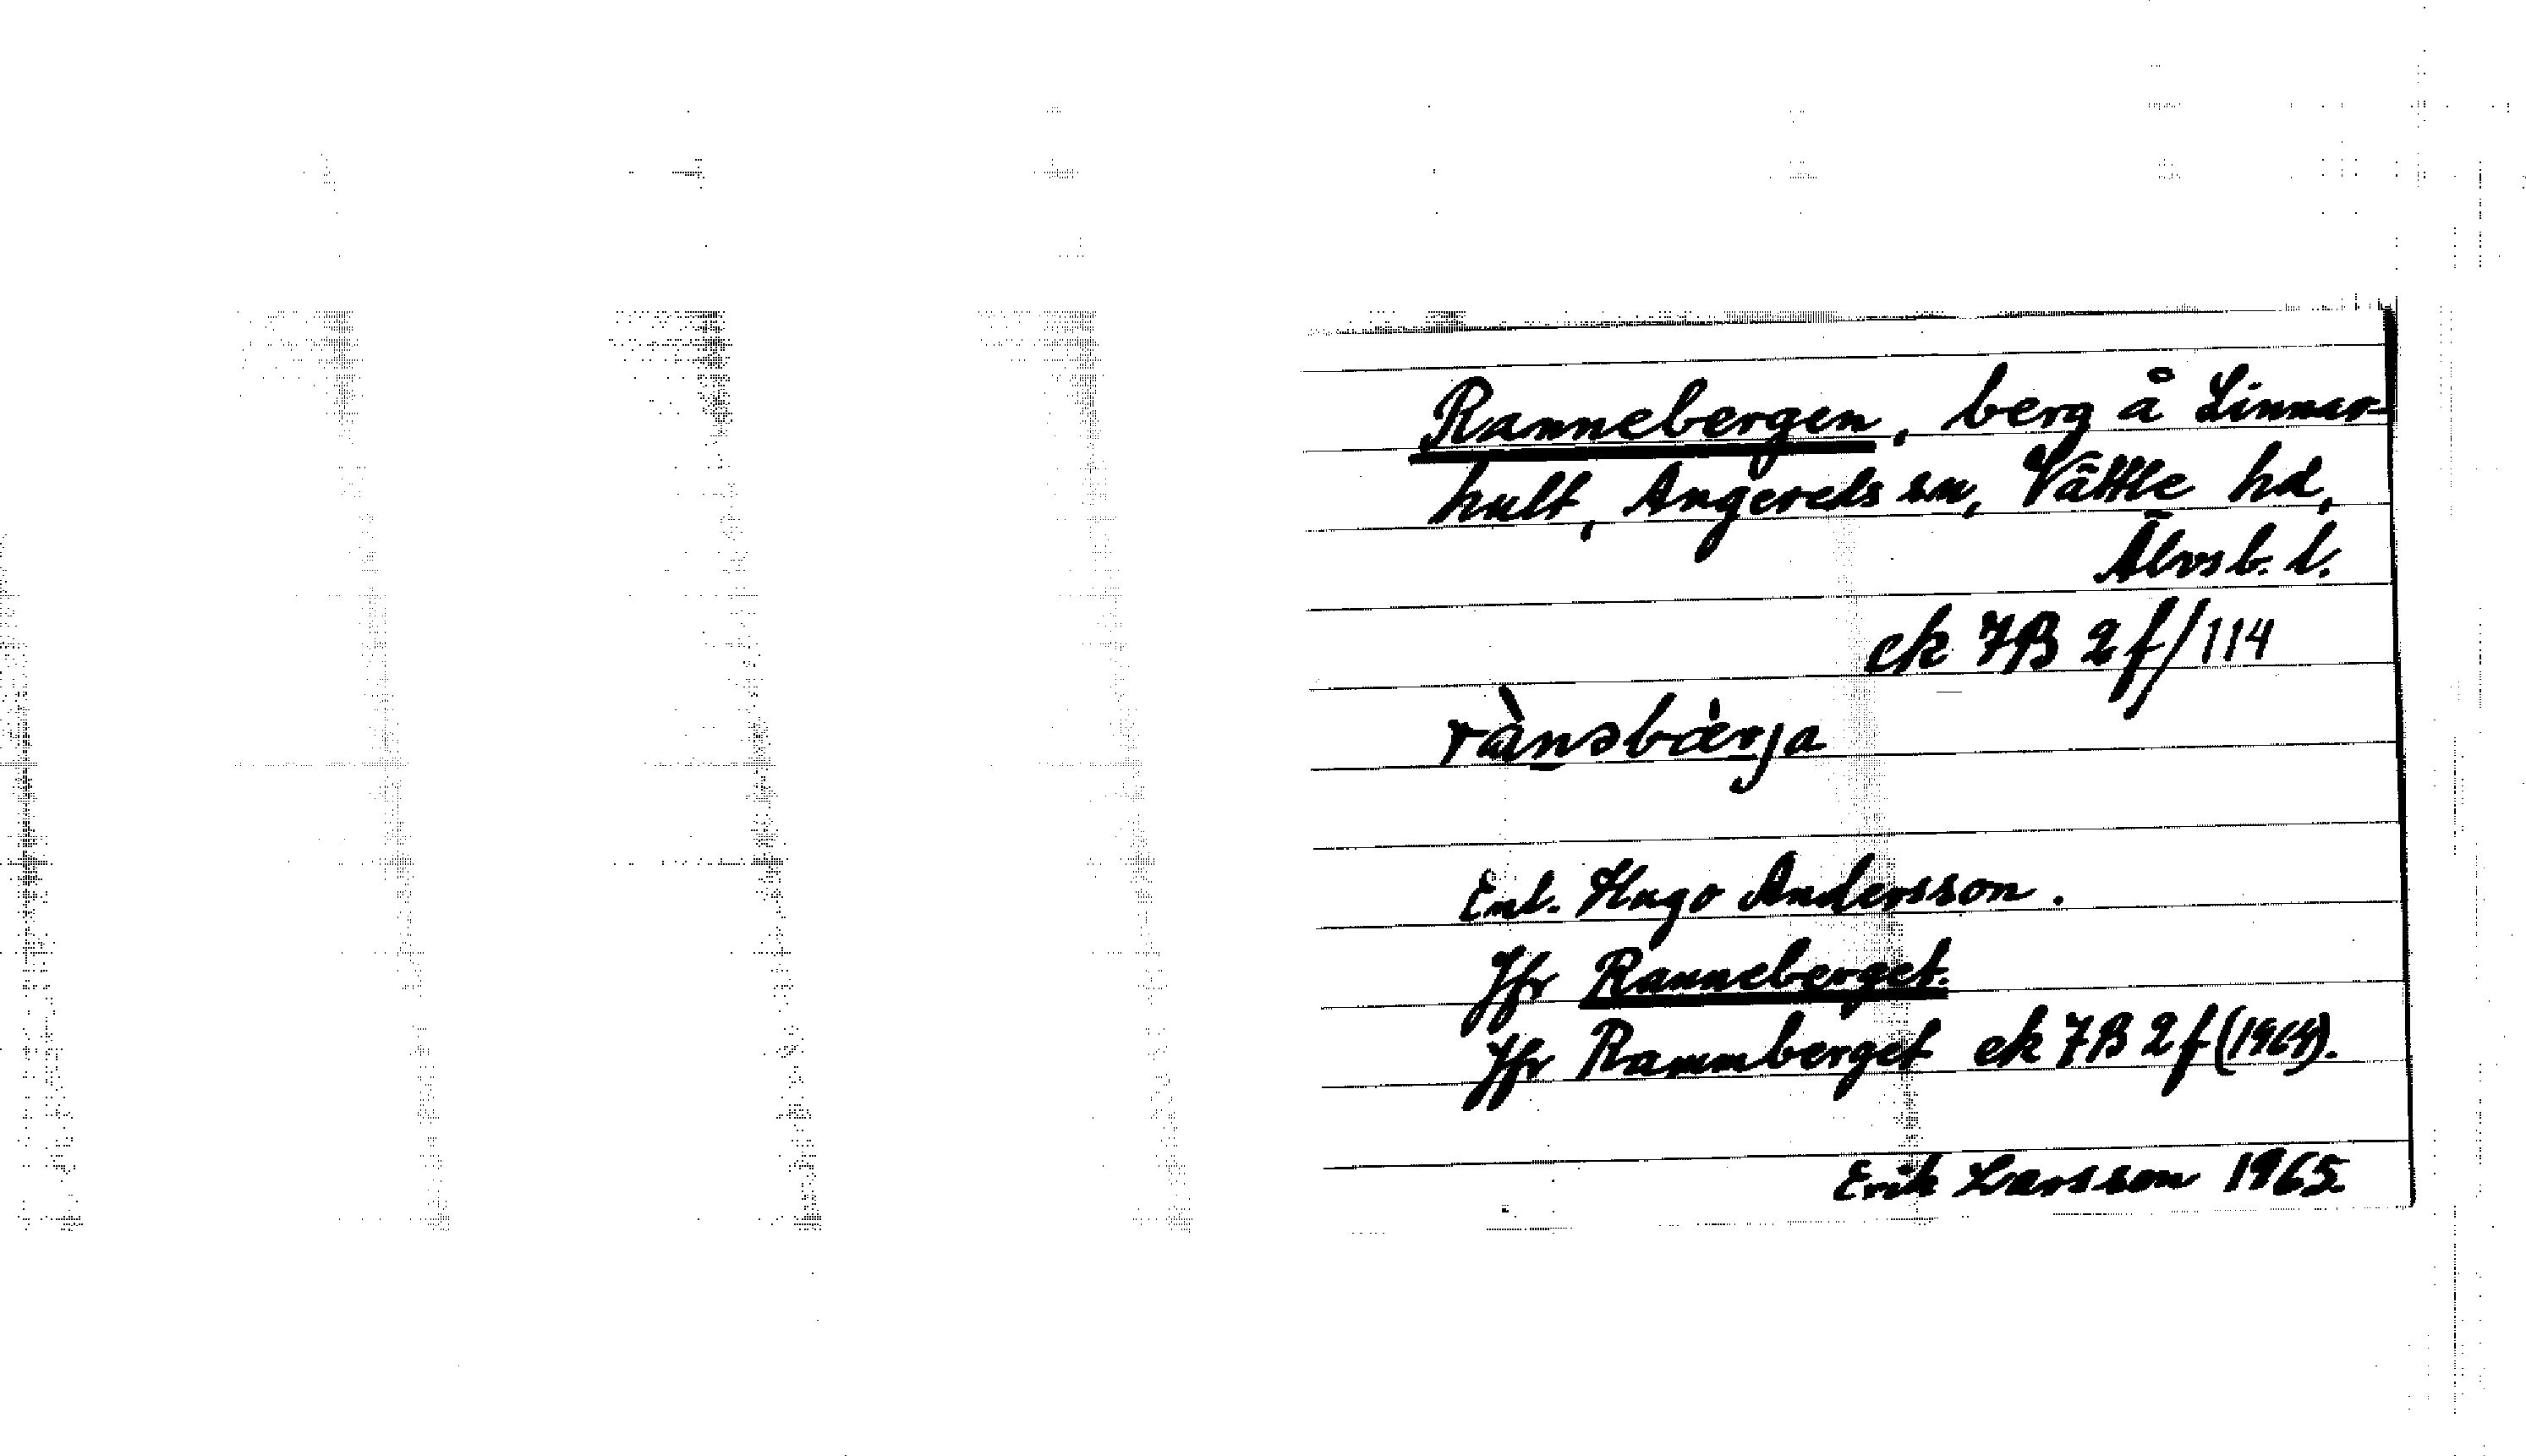 Rannebergen, berg å Linnar-
hult, Angereds sn, Vättle hd,
Älvsb. l.
ek 7B 2f/114
rànəbær̀ja
Enl. Hugo Andersson.
Jfr Ranneberget.
Jfr Rammberget ek 7B 2f (1964).
Erik Larsson 1965.